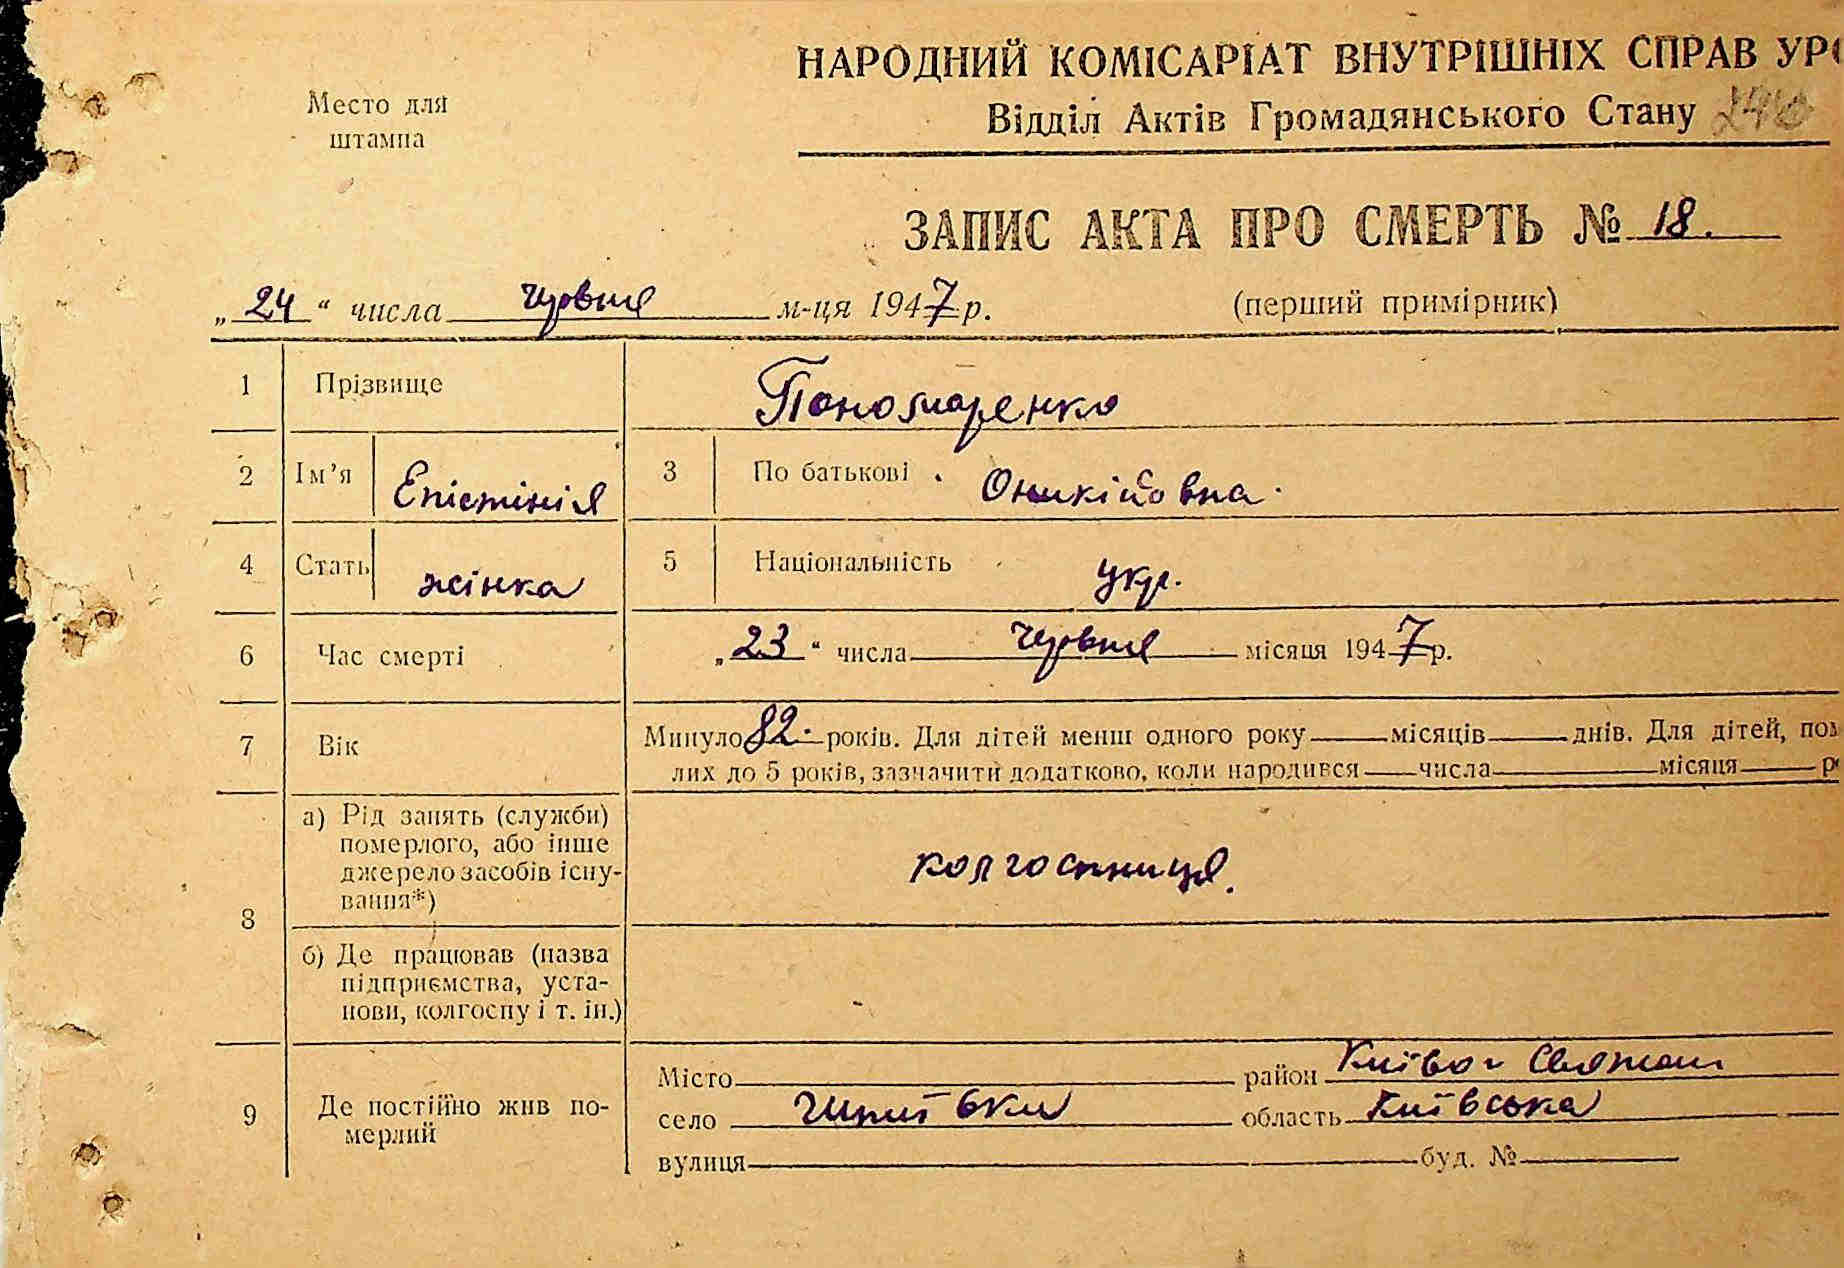 НАРОДНИЙ КОМІСАРІАТ ВНУТРІШНІХ СПРАВ УР
Место для штампа
Відділ Актів Громадянського Стану
ЗАПИС АКТА ПРО СМЕРТЬ № 18.
„24“ числа червня м-ця 1947 р. (перший примірник)
1 Прізвище Пономаренко
2 Ім’я Епістінія 3 По батькові Оникійовна
4 Стать жінка 5 Національність укр.
6 Час смерті „23“ числа червня місяця 1947 р.
7 Вік Минуло 82 років. Для дітей менш одного року місяців днів. Для дітей, пом
лих до 5 років, зазначити додатково, коли народився числа місяця р
8 а) Рід занять (служби)
померлого, або інше
джерело засобів існу-
вання*)
колгоспниця.
б) Де працював (назва
підприємства, уста-
нови, колгоспу і т. ін.)
9 Де постійно жив по-
мерлий
Місто район Київо Святош
село область Київська
вулиця буд. №